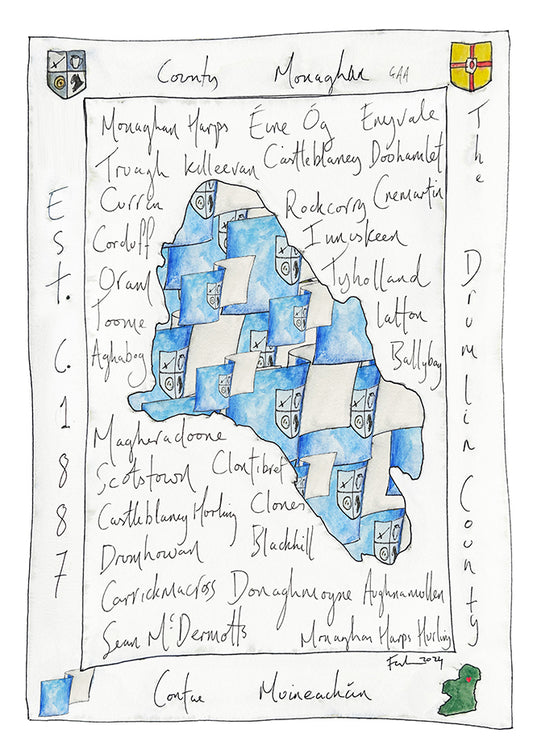 County Monaghan GAA
Monaghan Harps Éire Óg Emyvale
Truagh Killeevan Castleblaney Doohamlet
Currin Rockcorry Cremartin
Corduff Inniskeen
Oram Tyholland
Toome Latton
Aghabog Ballybay
Magheracloone
Scotstown Clontibret
Castleblaney Hurling Clones
Dromhowan Blackhill
Carrickmacross Donaghmoyne Aughnamullen
Sean McDermotts Monaghan Harps Hurling
2024
Est. C. 1887
The Drumlin County
Contae Muineachán